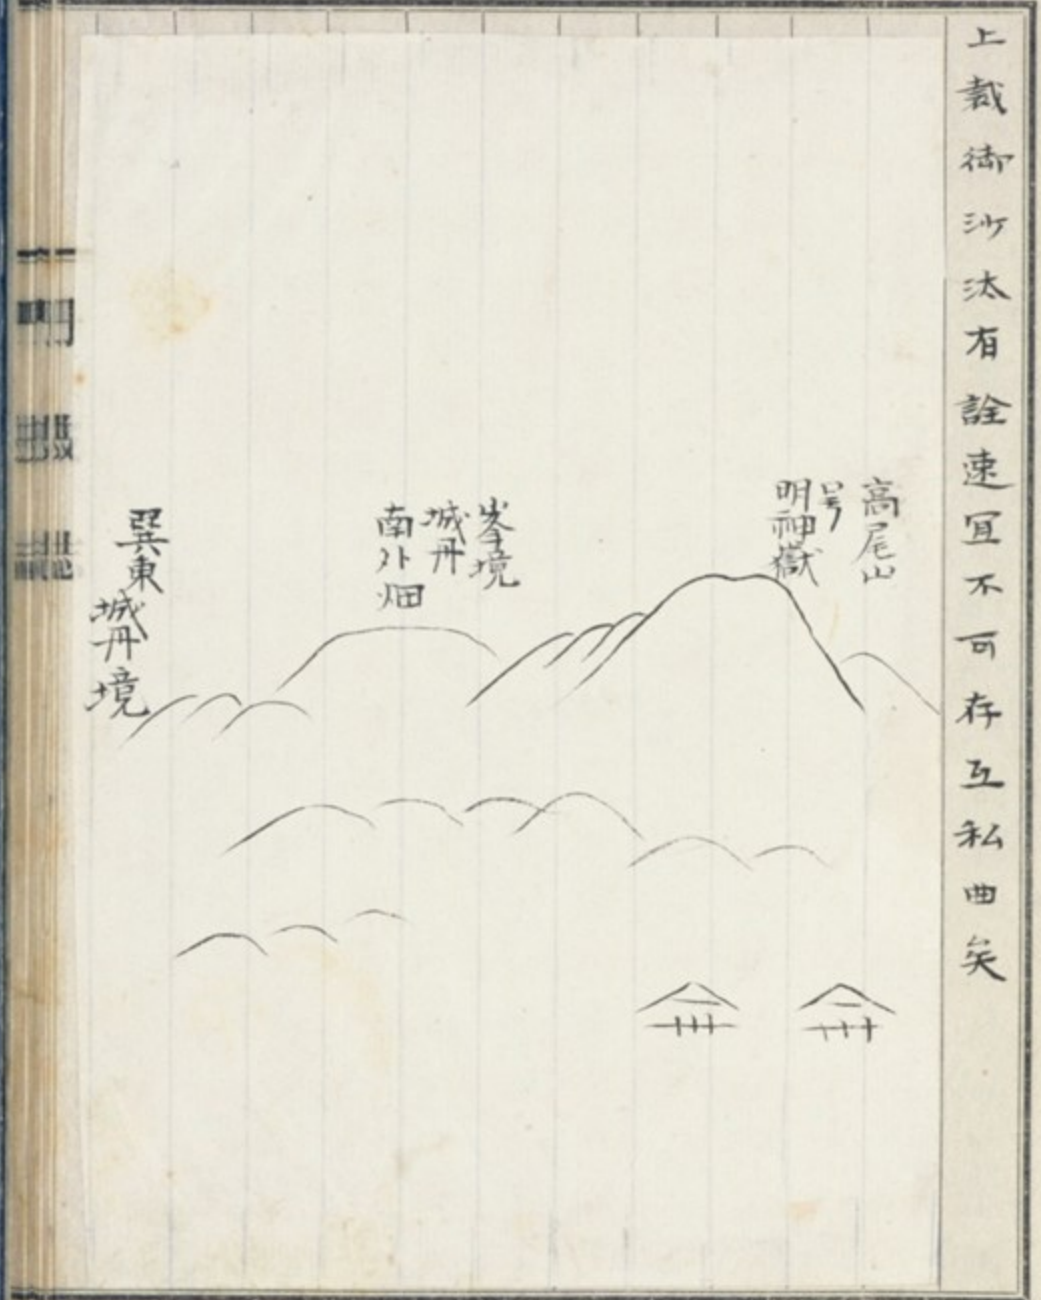 上裁御沙汰有詮速宜不可存互私曲矣
高尾山
号
明神嶽
峯境
城丹
南外畑
巽東
城丹境